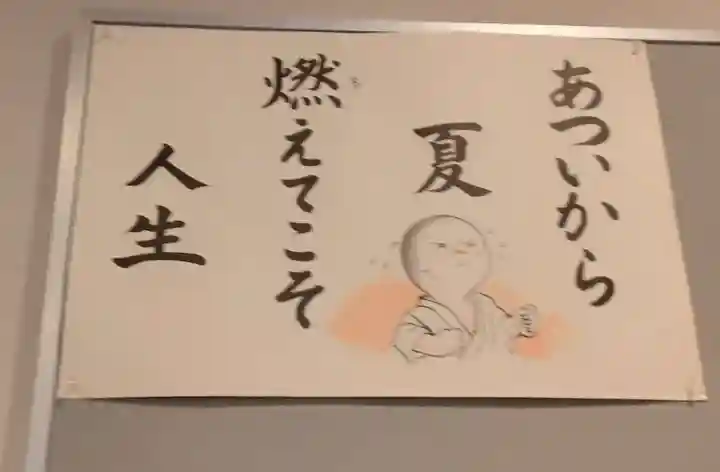 あついから
夏
燃えてこそ
人生